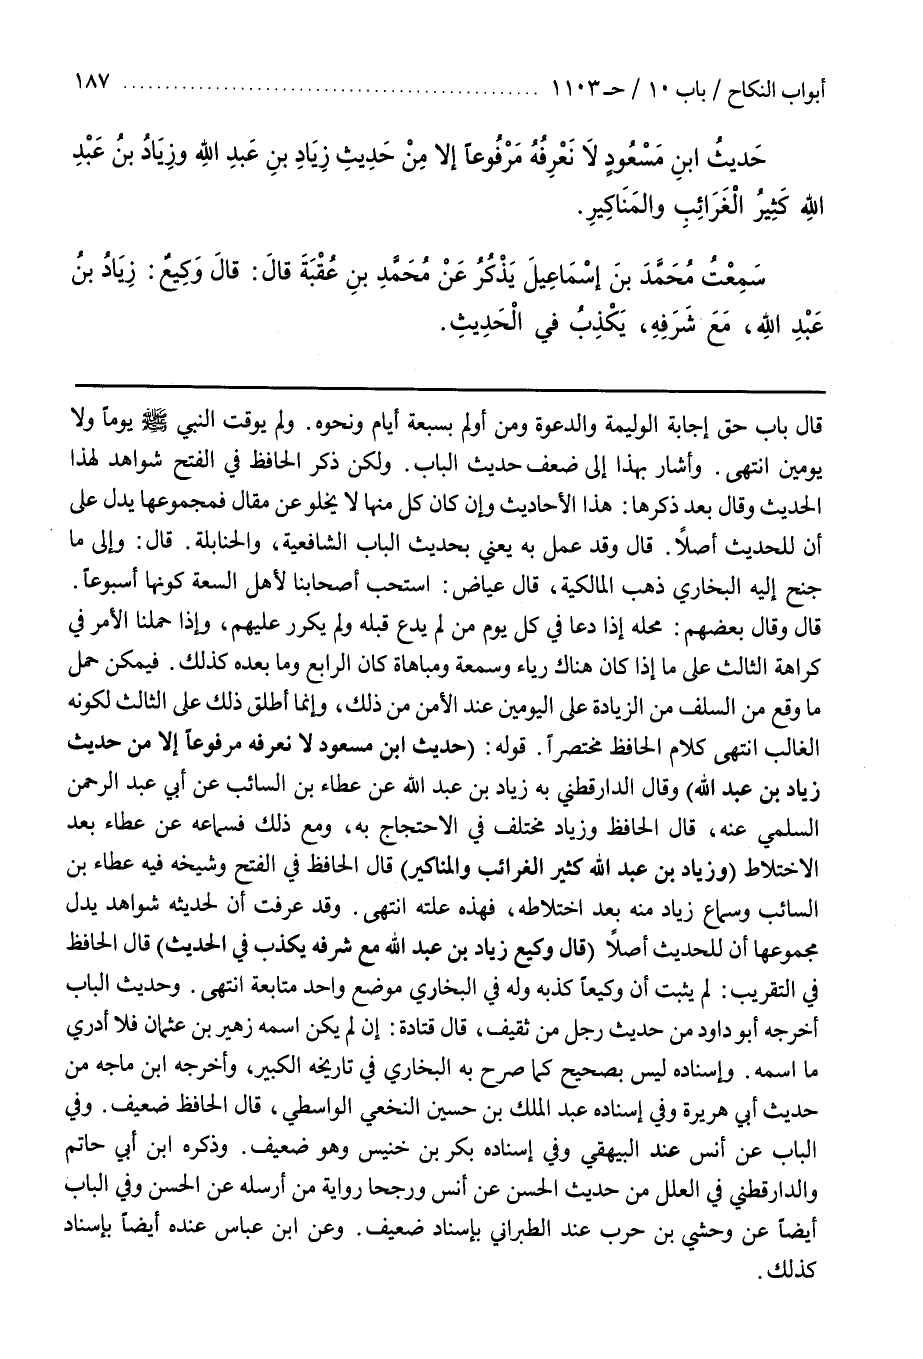 أبواب النكاح / باب ١٠ / حـ ١١٠٣ ................................................ ١٨٧
حَديثُ ابنِ مَسْعُودٍ لَا نَعْرِفُهُ مَرْفُوعاً إلا مِنْ حَدِيثِ زِيَادِ بنِ عَبدِ اللهِ وزِيَادُ بنُ عَبْدِ
اللهِ كَثِيرُ الْغَرَائِبِ والمَنَاكِيرِ.
سَمِعْتُ مُحَمَّدَ بنَ إسْمَاعِيلَ يَذْكُرُ عَنْ مُحَمَّدِ بنِ عُقْبَةَ قالَ: قالَ وَكِيعٌ: زِيَادُ بنُ
عَبْدِ اللهِ، مَعَ شَرَفِهِ، يَكْذِبُ في الْحَدِيثِ.
قال باب حق إجابة الوليمة والدعوة ومن أولم بسبعة أيام ونحوه. ولم يوقت النبي ﷺ يوماً ولا
يومين انتهى. وأشار بهذا إلى ضعف حديث الباب. ولكن ذكر الحافظ في الفتح شواهد لهذا
الحديث وقال بعد ذكرها: هذا الأحاديث وإن كان كل منها لا يخلو عن مقال فمجموعها يدل على
أن للحديث أصلاً. قال وقد عمل به يعني بحديث الباب الشافعية، والحنابلة. قال: وإلى ما
جنح إليه البخاري ذهب المالكية، قال عياض: استحب أصحابنا لأهل السعة كونها أسبوعاً.
قال وقال بعضهم: محله إذا دعا في كل يوم من لم يدع قبله ولم يكرر عليهم، وإذا حملنا الأمر في
كراهة الثالث على ما إذا كان هناك رياء وسمعة ومباهاة كان الرابع وما بعده كذلك. فيمكن حمل
ما وقع من السلف من الزيادة على اليومين عند الأمن من ذلك، وإنما أطلق ذلك على الثالث لكونه
الغالب انتهى كلام الحافظ مختصراً. قوله: (حديث ابن مسعود لا نعرفه مرفوعاً إلا من حديث
زياد بن عبد الله) وقال الدارقطني به زياد بن عبد الله عن عطاء بن السائب عن أبي عبد الرحمن
السلمي عنه، قال الحافظ وزياد مختلف في الاحتجاج به، ومع ذلك فسماعه عن عطاء بعد
الاختلاط (وزياد بن عبد الله كثير الغرائب والمناكير) قال الحافظ في الفتح وشيخه فيه عطاء بن
السائب وسماع زياد منه بعد اختلاطه، فهذه علته انتهى. وقد عرفت أن لحديثه شواهد يدل
مجموعها أن للحديث أصلاً (قال وكيع زياد بن عبد الله مع شرفه يكذب في الحديث) قال الحافظ
في التقريب: لم يثبت أن وكيعاً كذبه وله في البخاري موضع واحد متابعة انتهى. وحديث الباب
أخرجه أبو داود من حديث رجل من ثقيف، قال قتادة: إن لم يكن اسمه زهير بن عثمان فلا أدري
ما اسمه. وإسناده ليس بصحيح كما صرح به البخاري في تاريخه الكبير، وأخرجه ابن ماجه من
حديث أبي هريرة وفي إسناده عبد الملك بن حسين النخعي الواسطي، قال الحافظ ضعيف. وفي
الباب عن أنس عند البيهقي وفي إسناده بكر بن خنيس وهو ضعيف. وذكره ابن أبي حاتم
والدارقطني في العلل من حديث الحسن عن أنس ورجحا رواية من أرسله عن الحسن وفي الباب
أيضاً عن وحشي بن حرب عند الطبراني بإسناد ضعيف. وعن ابن عباس عنده أيضاً بإسناد
كذلك.